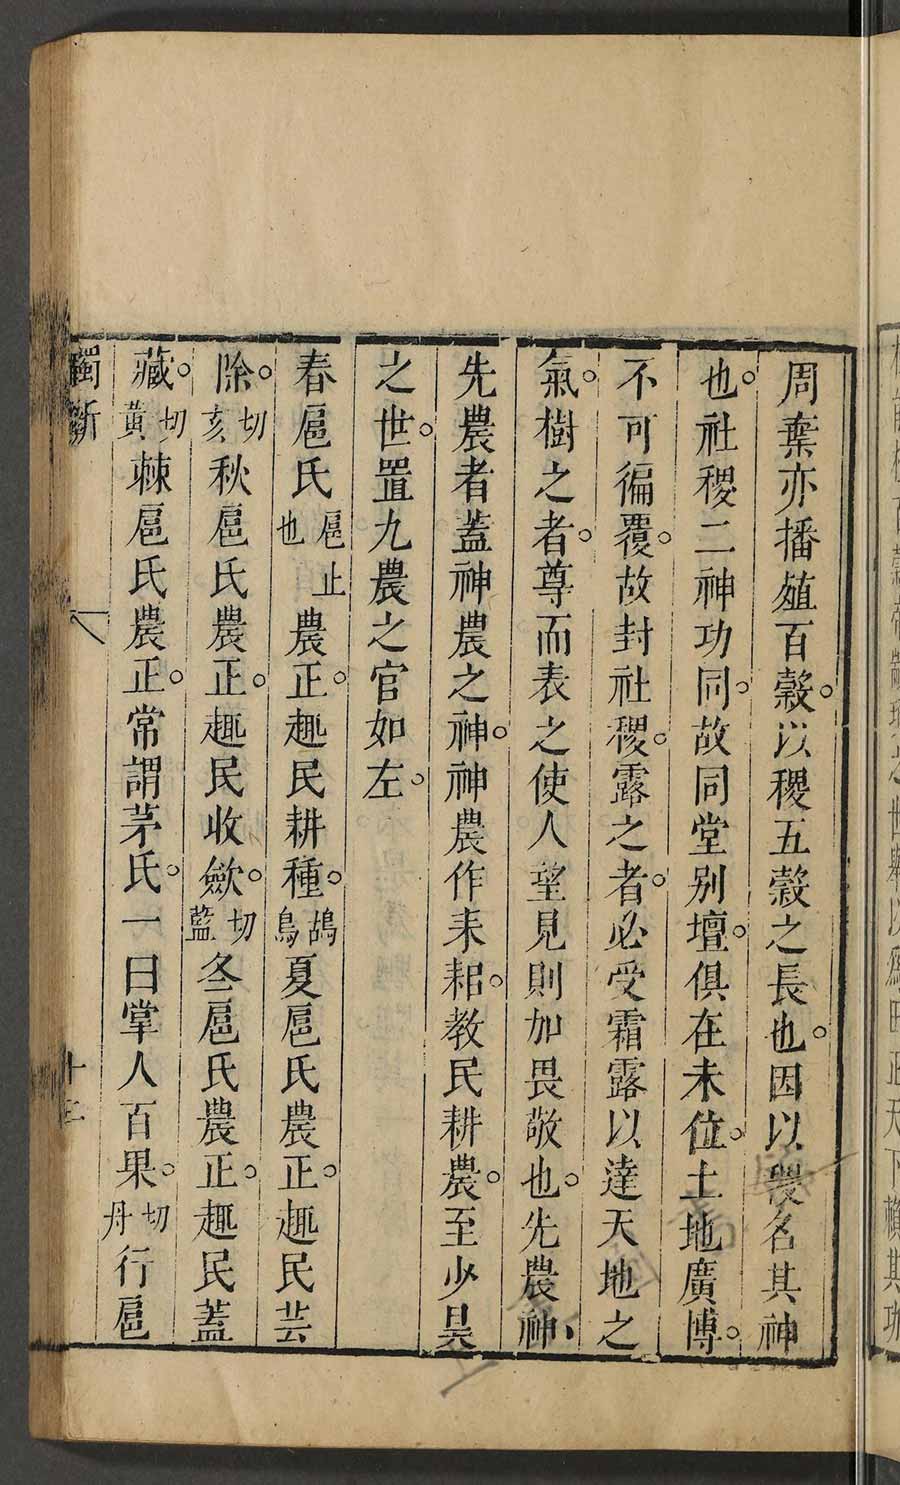 周棄亦播殖百穀。以稷五穀之長也。因以稷名其神
也。社稷二神功同。故同堂别壇。俱在未位。土地廣博。
不可徧覆。故封社稷。露之者。必受霜露以達天地之
氣。樹之者。尊而表之使人望見則加畏敬也。先農神、
先農者蓋神農之神。神農作耒耜。教民耕農。至少昊
之世。置九農之官如左。
春扈氏扈止也農正。趣民耕種。鳸鳥夏扈氏農正。趣民芸
除。切玄秋扈氏農正。趣民收斂。切藍冬扈氏農正。趣民蓋
藏。切黃棘扈氏農正。常謂茅氏。一曰掌人百果。切丹行扈
獨斷
十三